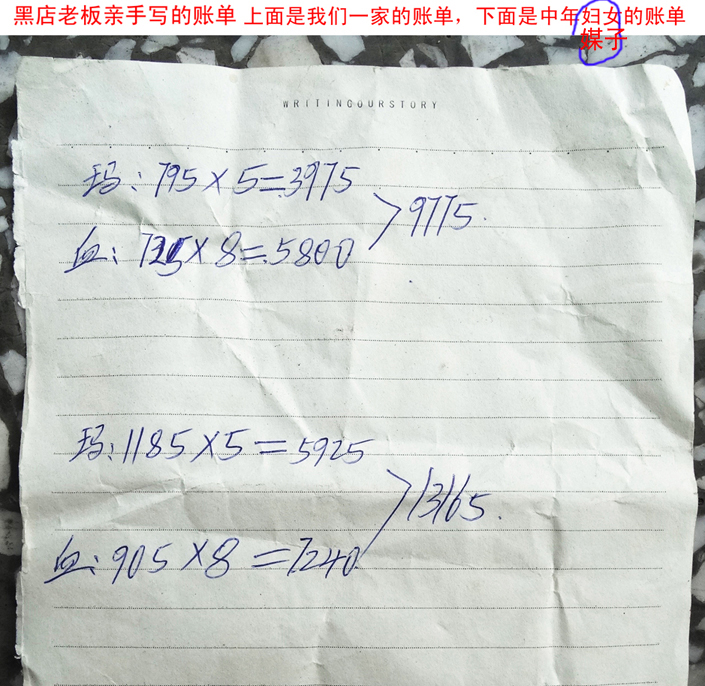 黑店老板亲手写的账单 上面是我们一家的账单，下面是中年妇女的账单
媒子
WRITINGOURSTORY
玛：795×5=3975
9775.
血：725×8=5800
玛：1185×5=5925
13165.
血：905×8=7240